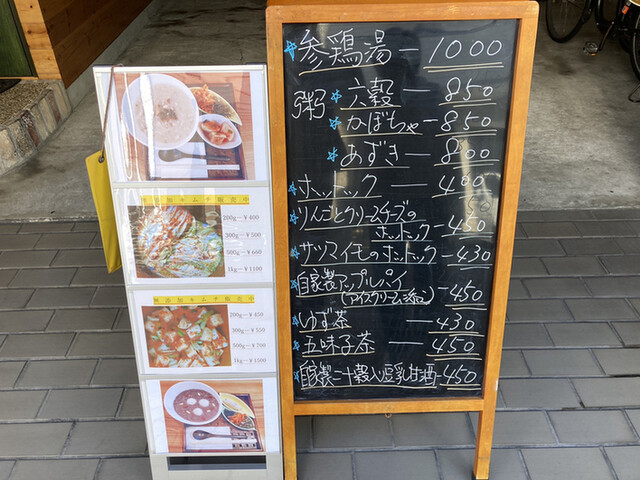 参鶏湯 — 1000
粥 六穀 — 850
かぼちゃ — 850
あずき — 800
ホットック — 400
りんごとクリームチーズの
ホットック — 450
サツマイモのホットック — 430
自家製アップルパイ
(アイスクリーム添え) — 450
ゆず茶 — 430
五味子茶 — 450
自家製二十穀入豆乳甘酒 — 450
キムチ販売中
200g～￥400
300g～￥500
500g～￥600
1kg～￥1100
キムチ販売中
200g～￥450
300g～￥550
500g～￥700
1kg～￥1500